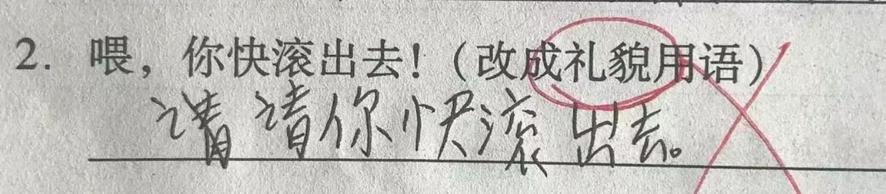 2. 喂，你快滚出去！（改成礼貌用语）
请请你快滚出去。